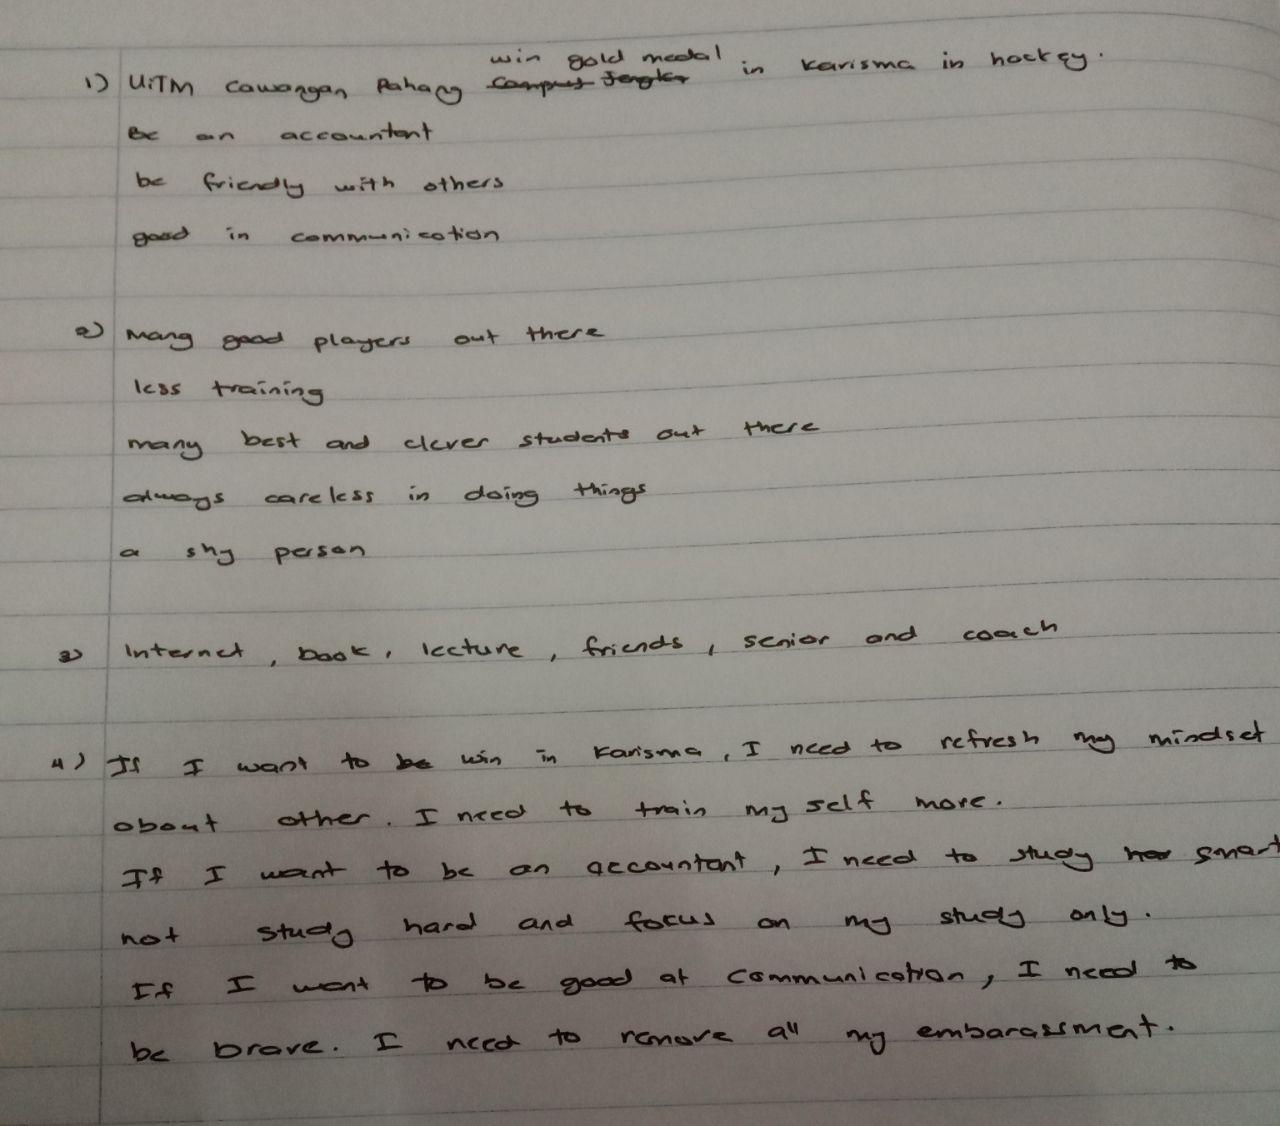 1) UiTM Cawangan Pahang win gold medal in Karisma in hockey.
Be an accountant
be friendly with others
good in communication
2) Many good players out there
less training
many best and clever students out there
always careless in doing things
a shy person
3) Internet, book, lecture, friends, senior and coach
4) If I want to be win in Karisma, I need to refresh my mindset
about other. I need to train my self more.
If I want to be an accountant, I need to study smart
not study hard and focus on my study only.
If I want to be good at communication, I need to
be brave. I need to remove all my embarassment.